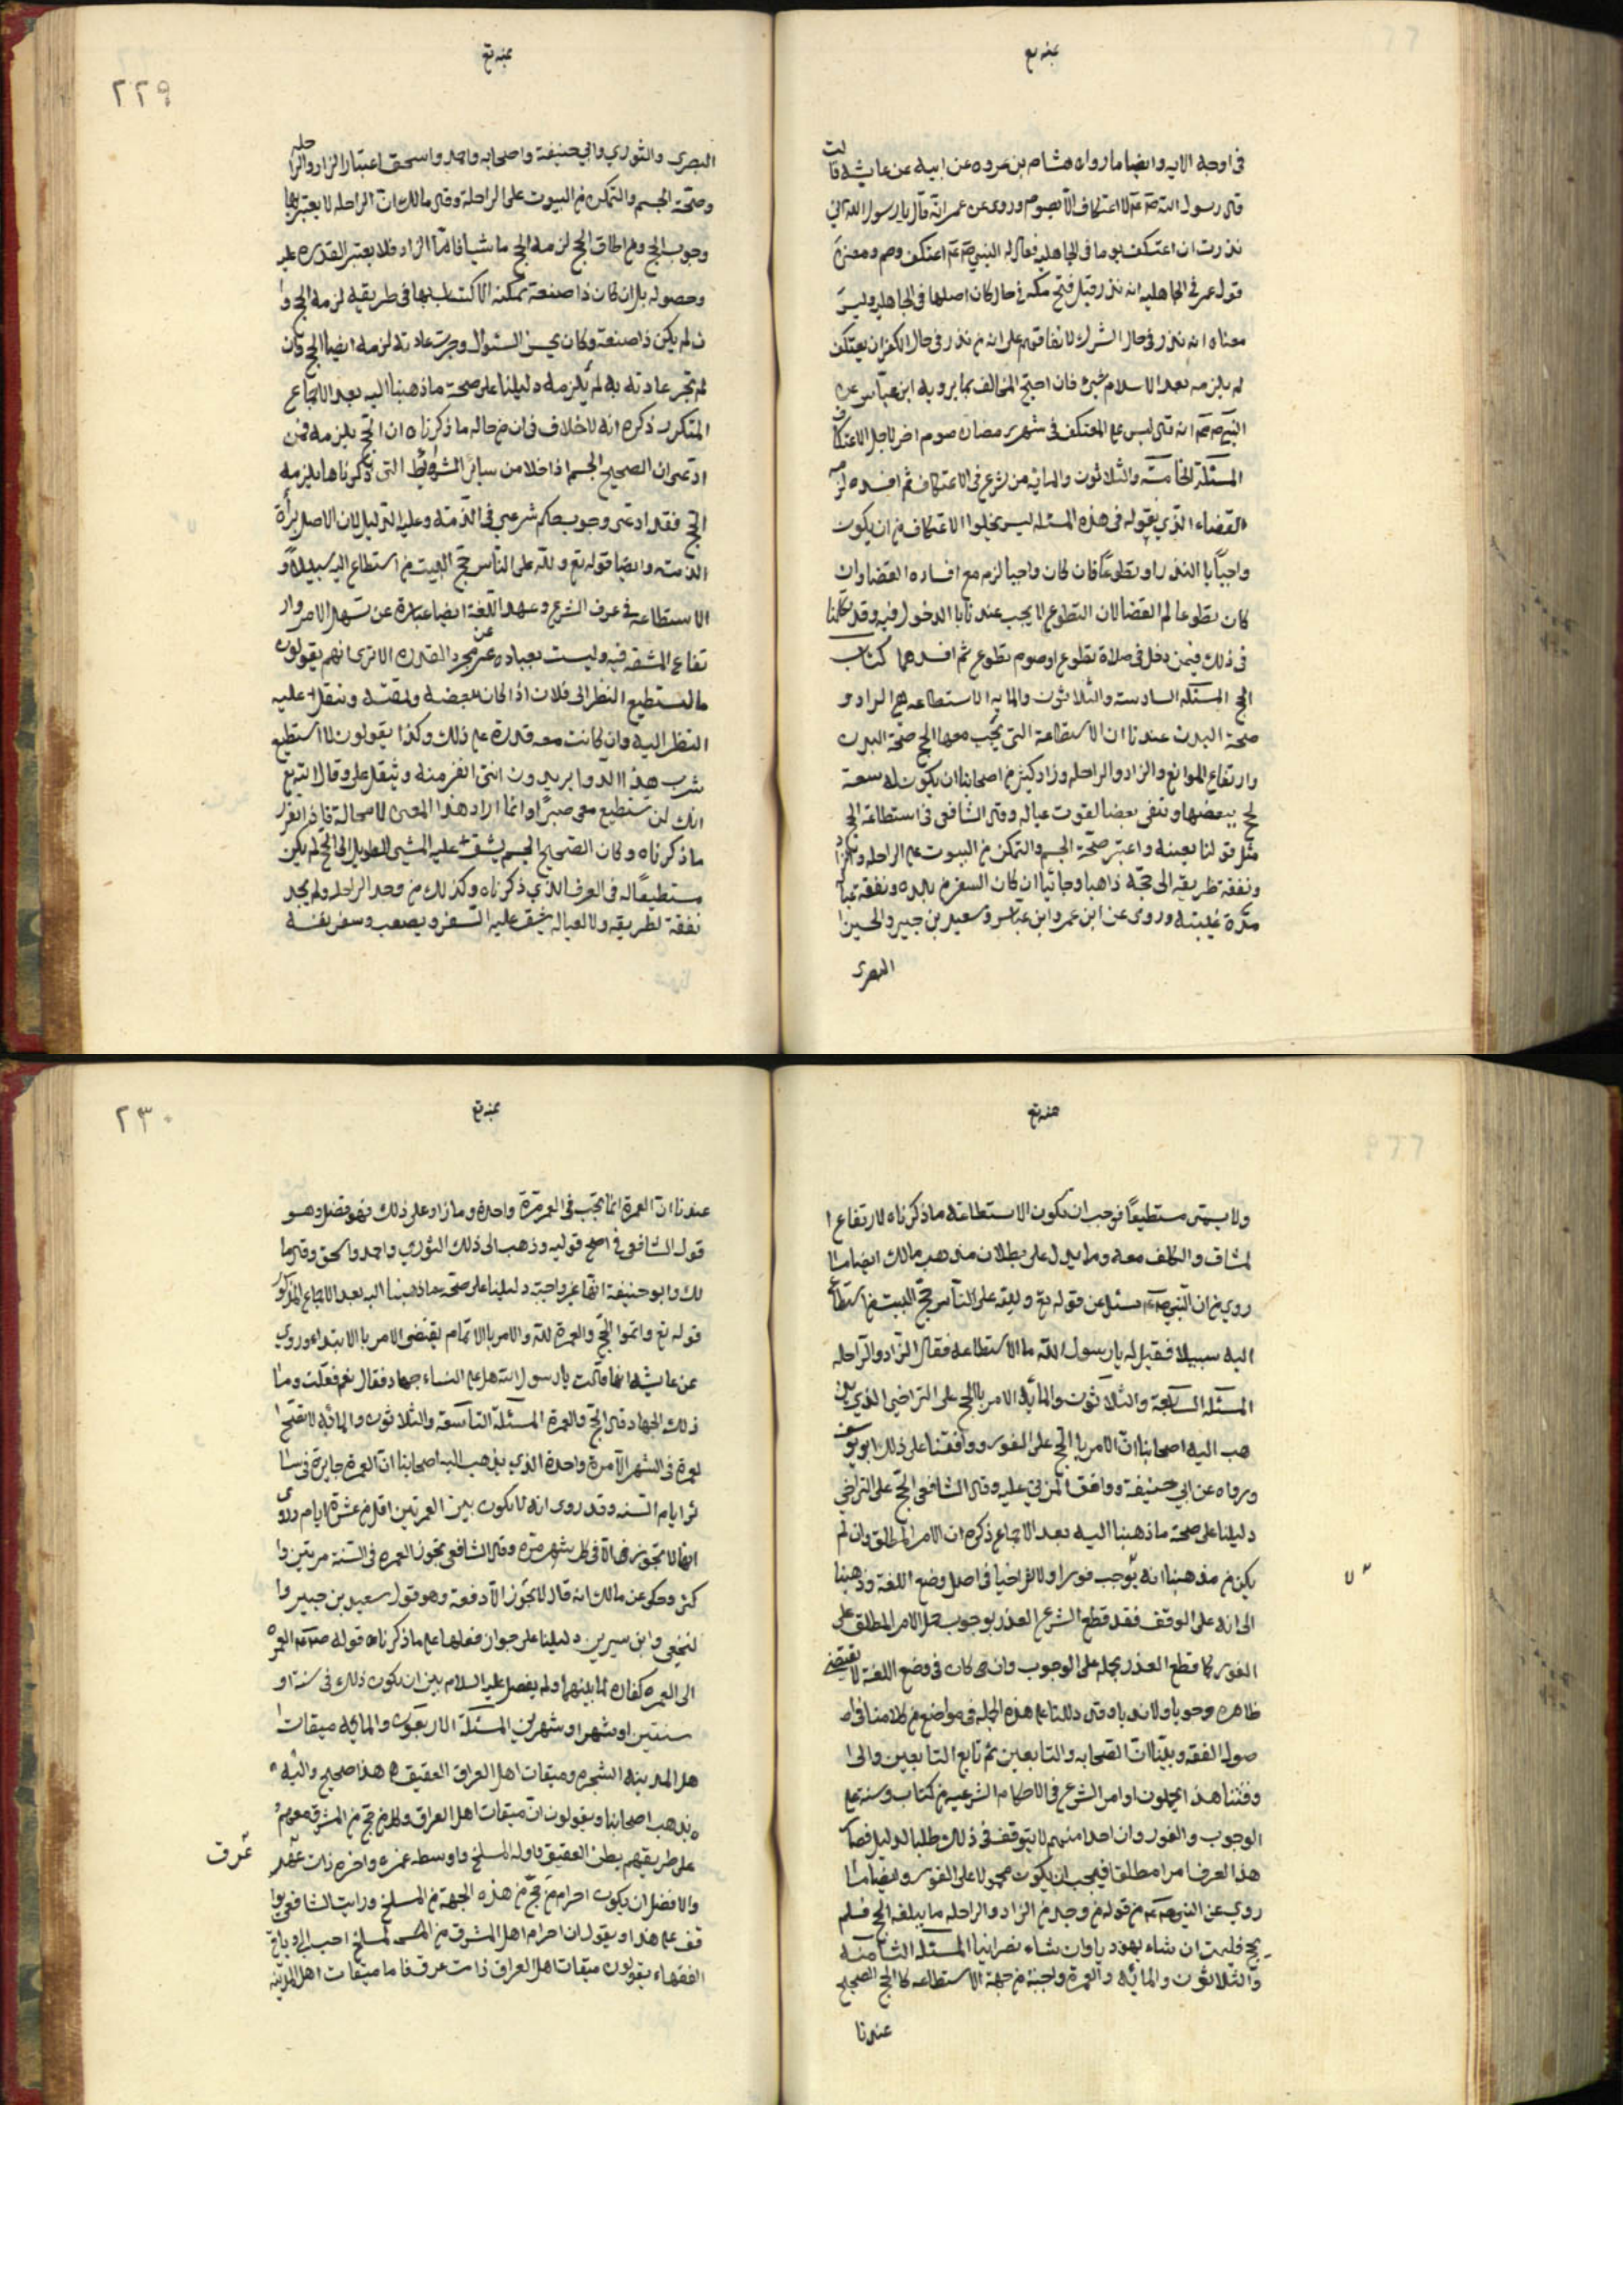 في اوجه الايه وايضا ما رواه هشام بن عروه عن ابيه عن عايشه قالت
قال رسول الله صم لا اعتكاف الا بصوم وروى عن عمر انه قال يا رسول الله اني
نذرت ان اعتكف يوما في الجاهليه فقال له النبي صم اعتكف وصم ومعنى
قول عمر في الجاهليه انه نذر قبل فتح مكه في حال كان اصلها في الجاهليه وليس
معناه انه نذر في حال الشرك لاتفاقهم على ان من نذر في حال الكفر ان يعتكف
لم يلزمه بعد الاسلام شئ فان احتج المخالف بما يرويه ابن عباس عن
النبي صم انه قال ليس على المعتكف في شهر رمضان صوم اخر لاجل الاعتكاف
المسئلة الخامسة والثلاثون والمايه من شرع في الاعتكاف ثم افسده لزمه
القضاء الذي يقوله في هذه المسئله ليس يخلوا الاعتكاف من ان يكون
واجبا با النذر او تطوعا فان كان واجبا لزم مع افساده القضا وان
كان تطوعا لم القضا لان التطوع لا يجب عندنا با الدخول فيه وقد تكلمنا
في ذلك فيمن دخل في صلاة تطوع او صوم تطوع ثم افسدهما كتاب
الحج المسئله السادسة والثلاثون والمايه الاستطاعه هي الزاد و
صحة البدن عندنا ان الاستطاعة التي يجب معها الحج صحة البدن
وارتفاع الموانع والزاد والراحله وزاد كثير من اصحابنا ان يكون له سعة
يحج ببعضها وتبقى بعضا لقوت عياله وقال الشافعي في استطاعة الحج
مثل قولنا بعينه واعتبر صحة الجسم والتمكن من الثبوت على الراحله والزاد
ونفقة طريقه الى حجه ذاهبا وجائيا ان كان السفر من بلده ونفقة عياله
مدة غيبته وروى عن ابن عمر وابن عباس وسعيد بن جبير والحسن
البصرى
٢٢٩
البصرى والثوري وابي حنيفة واصحابه واحمد واسحق اعتبار الزاد والراحله
وصحة الجسم والتمكن من الثبوت على الراحلة وقال مالك ان الراحله لا يعتبر بها
وجوب الحج ومن اطاق الحج لزمه الحج ماشيا فاما الزاد فلا يعتبر القدره عليه
وحصوله بل ان كان ذا صنعة يمكنه الاكتساب بها في طريقه لزمه الحج وا
ن لم يكن ذا صنعة وكان يحسن السئوال وجرت عادته لزمه ايضا الحج وان
لم تجر عادته به لم يلزمه دليلنا على صحة ما ذهبنا اليه بعد الاجماع
المتكرر ذكره انه لا خلاف في ان من حاله ما ذكرناه ان الحج يلزمه فمن
ادعى ان الصحيح الجسم اذا خلا من ساير الشرائط التي ذكرناها يلزمه
الحج فقد ادعى وجوب حكم شرعي في الذمة وعليه الدليل لان الاصل براءة
الذمه وايضا قوله تع ولله على الناس حج البيت من استطاع اليه سبيلا و
الاستطاعه في عرف الشرع وعهد اللغة ايضا عبارة عن تسهل الامر وار
تفاع المشقه فيه وليست بعباده عن مجرد القدره الا ترى انهم يقولون
ما استطيع النظر الى فلان اذا كان يبغضه ويمقته ويثقل عليه
النظر اليه وان كانت معه قدرة على ذلك وكذا يقولون لا استطيع
شرب هذا الدوا يريدون انني انفر منه ويثقل علي وقال الله تع
انك لن تستطيع معي صبرا وانما اراد هذا المعنى لا محالة فاذا تقرر
ما ذكرناه وكان الصحيح الجسم يشق عليه المشي الطويل الى الحج لم يكن
مستطيعا له في العرف الذي ذكرناه وكذلك من وجد الراحله ولم يجد
نفقة لطريقه ولا لعياله يشق عليه السفر ويصعب وسفر نفسه
ولا يسمى مستطيعا فوجب ان تكون الاستطاعة ما ذكرناه لارتفاع ا
لمشاق والكلف معه ومما يدل على بطلان مذهب مالك ايضا ما
روي من ان النبي صم سئل عن قوله تع ولله على الناس حج البيت من استطاع
اليه سبيلا فقيل له يا رسول الله ما الاستطاعه فقال الزاد والراحله
المسئله السابعة والثلاثون والمائه الامر بالحج على التراخي الذي يذ
هب اليه اصحابنا ان الامر بالحج على الفور ووافقنا على ذلك ابو يوسف
ورواه عن ابي حنيفة ووافق المزني عليه وقال الشافعي الحج على التراخي
دليلنا على صحة ما ذهبنا اليه بعد الاجماع ذكره ان الامر المطلق وان لم
يكن من مذهبنا انه يوجب فورا ولا تراخيا في اصل وضع اللغة وذهبنا
الى انه على الوقف فقد قطع الشرع العذر بوجوب حمل الامر المطلق على
الفور كما قطع العذر بحمله على الوجوب وان كان في وضع اللغة لا يقتضي
ظاهره وجوبا ولا ندبا وقد دللنا على هذه الجمله في مواضع من كلامنا في ا
صول الفقه وبينا ان الصحابه والتابعين ثم تابع التابعين والى
وقتنا هذا يحملون اوامر الشرع في الاحكام الشرعيه من كتاب وسنه على
الوجوب والفور وان احدا منهم لا يتوقف في ذلك طلبا لدليل فصار
هذا العرف امرا مطلقا فيجب ان يكون محمولا على الفور وايضا ما
روي عن النبي صم من قوله من وجد من الزاد والراحله ما يبلغه الحج فلم
يحج فليمت ان شاء يهوديا وان شاء نصرانيا المسئله الثامنه
والثلاثون والمائه والعمرة واجبة من جهة الاستطاعه كا الحج الصحيح
عندنا
٢٣٠
عندنا ان العمرة انما تجب في العمر مرة واحدة وما زاد على ذلك فهو فضل وهو
قول الشافعي في اصح قوليه وذهب الى ذلك الثوري واحمد واسحق وقال ما
لك وابو حنيفة انها غير واجبة دليلنا على صحة ما ذهبنا اليه بعد الاجماع المذكور
قوله تع واتموا الحج والعمرة لله والامر با الاتمام يقتضى الامر با الابتداء وروي
عن عايشه انها قالت يا رسول الله هل على النساء جهاد فقال نعم فقلت وما
ذلك الجهاد قال الحج والعمرة المسئلة التاسعة والثلاثون والمائه لا تصح ا
لعمرة في الشهر الا مرة واحدة الذي يذهب اليه اصحابنا ان العمرة جايزة في سا
ئر ايام السنه وقد روى انه لا يكون بين العمرتين اقل من عشرة ايام وروى
انها لا تجوز الا في كل شهر مرة وقال الشافعي تجوز العمره في السنة مرتين وا
كثر وحكى عن مالك انه قال لا يجوز الا دفعة وهو قول سعيد بن جبير وا
لنخعي وابن سيرين دليلنا على جواز فعلها على ما ذكرناه قوله صم العمره
الى العمره كفاره لما بينهما ولم يفصل عليه السلام بين ان يكون ذلك في سنة او
سنتين او شهر او شهرين المسئلة الاربعون والمايه ميقات ا
هل المدينه الشجره وميقات اهل العراق العقيق هذا صحيح واليه
يذهب اصحابنا ويقولون ان ميقات اهل العراق وكل من حج من المشرق معهم
على طريقهم بطن العقيق واوله المسلخ واوسطه غمره واخره ذات عرق
عرق
والافضل ان يكون احرام من حج من هذه الجهة من المسلخ ورايت الشافعي يوا
فق على هذا ويقول ان احرام اهل المشرق من المسلخ احب الي وباقي
الفقهاء يقولون ميقات اهل العراق ذات عرق فاما ميقات اهل المدينه